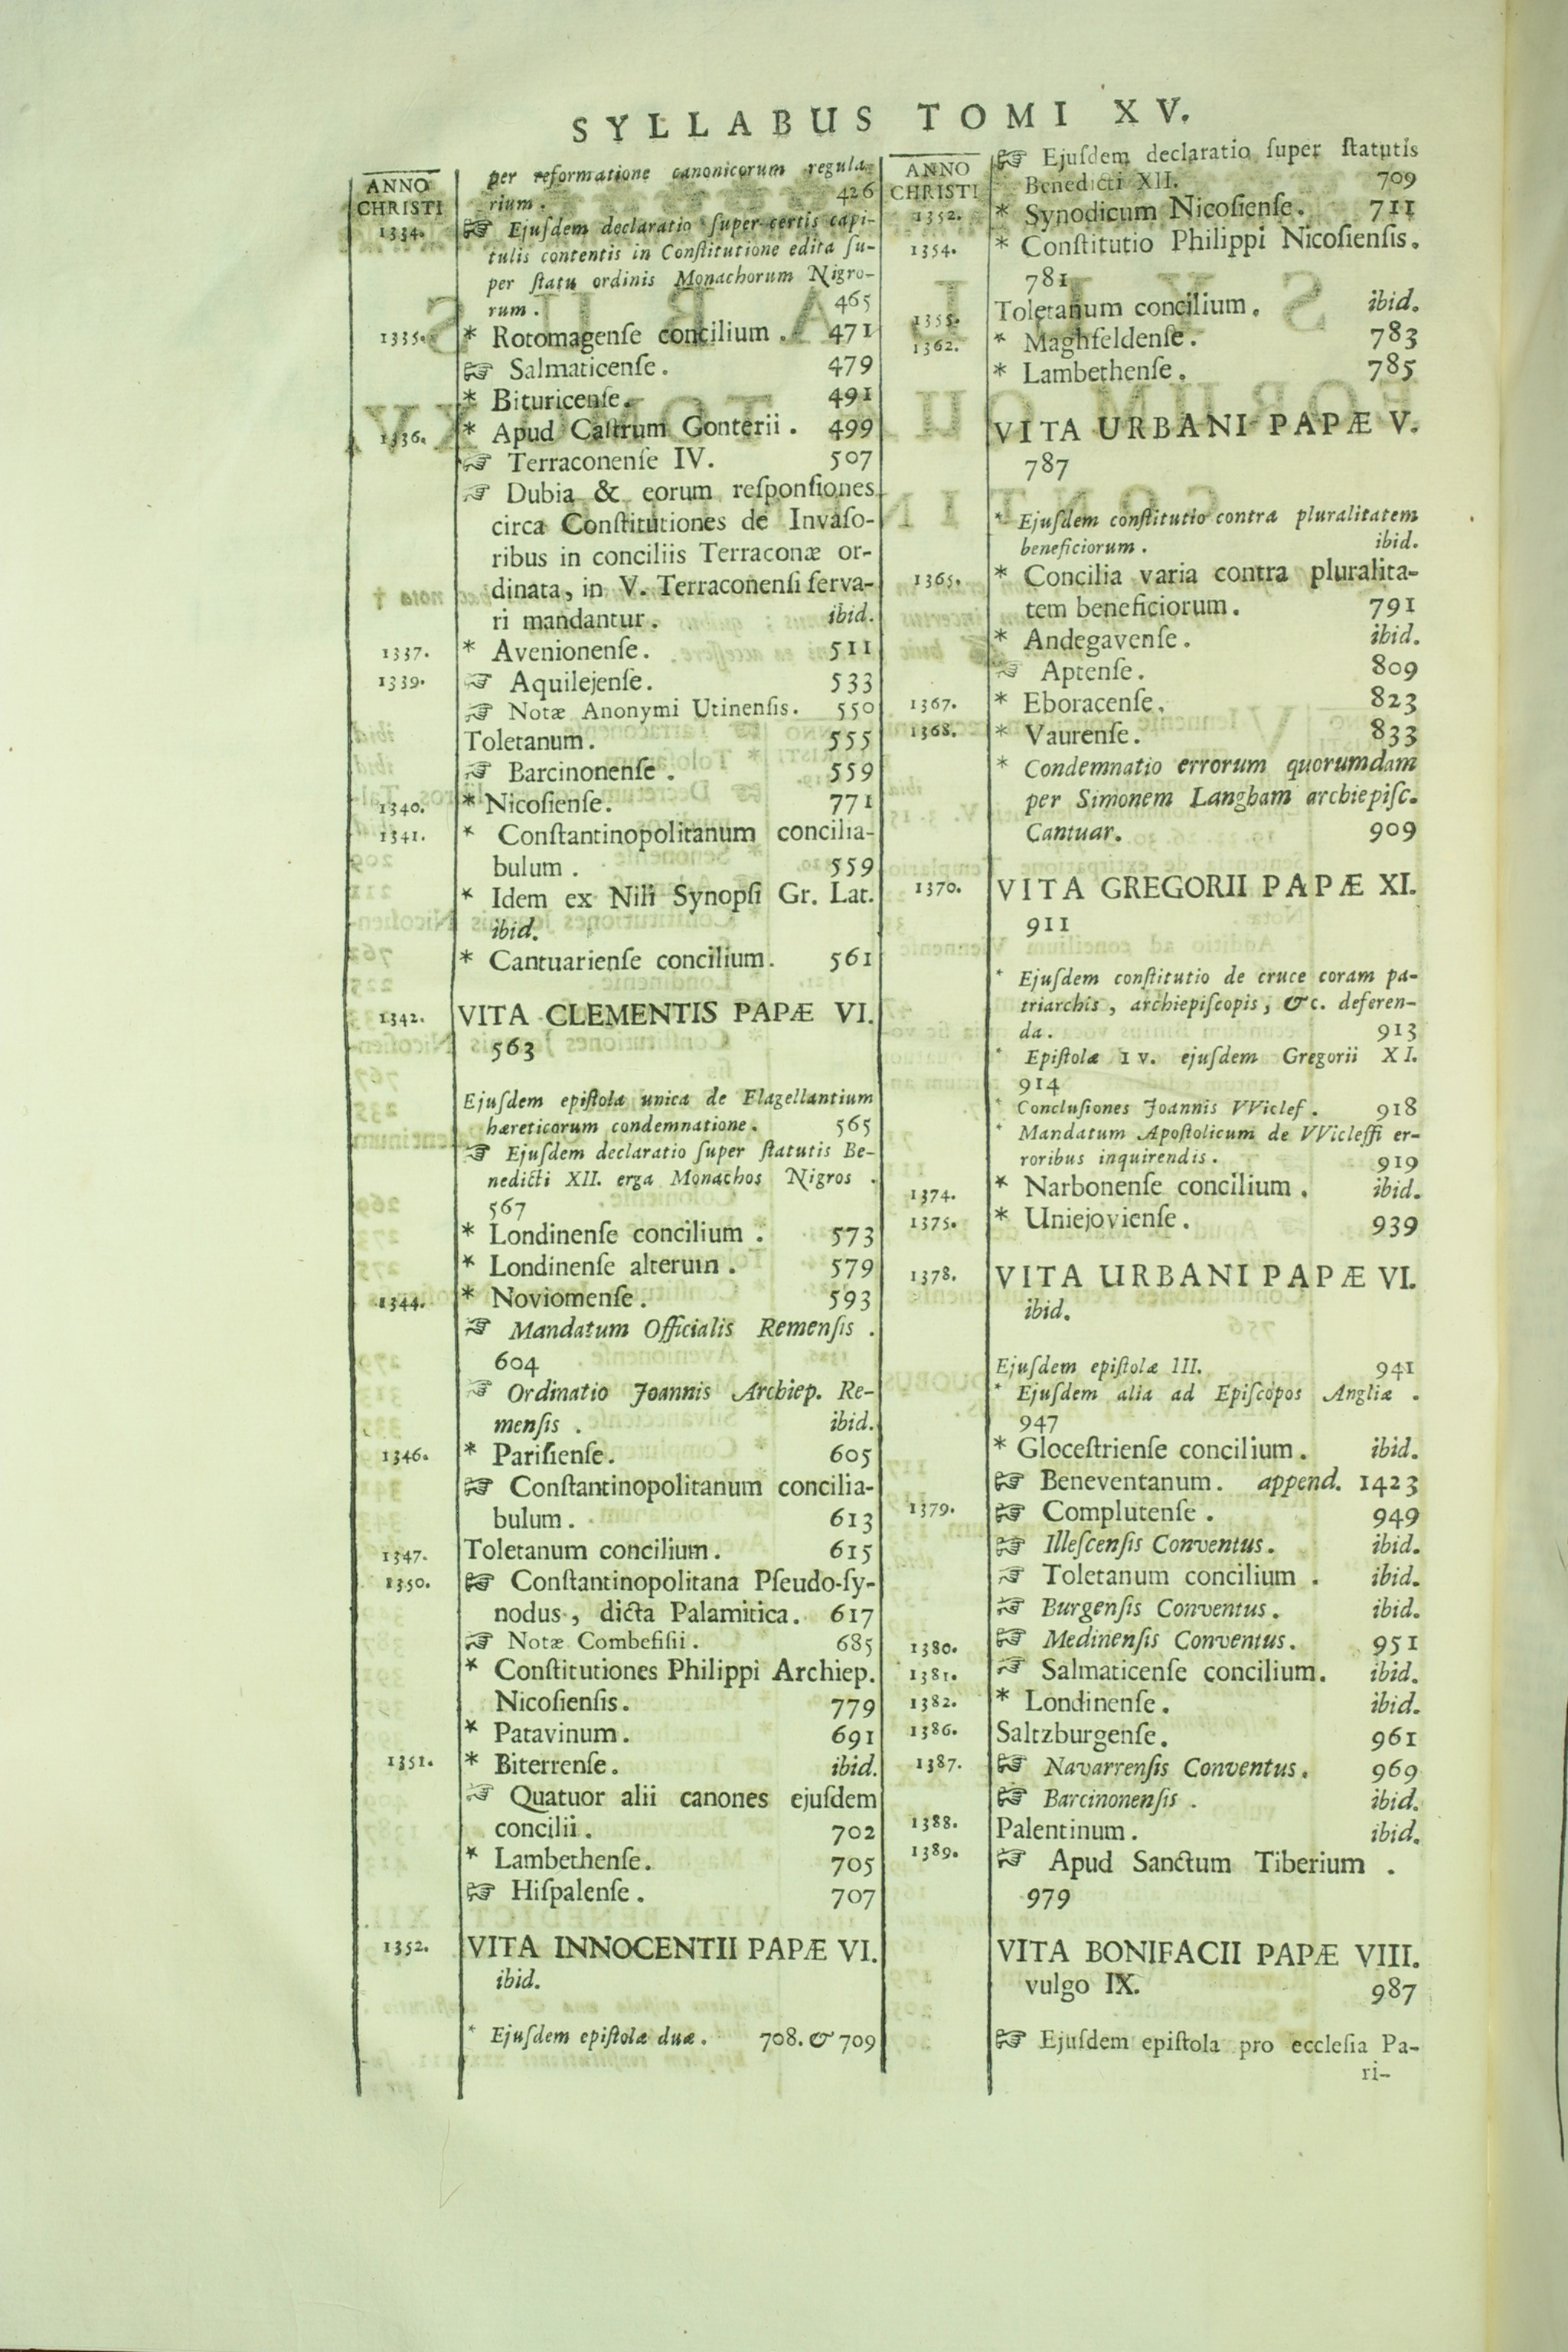 SYLLABUS TOMI XV.
ANNO
CHRISTI
1334.
per reformatione canonicorum regula-
rium. 426
☞ Ejuſdem declaratio ſuper certis capi-
tulis contentis in Conſtitutione edita ſu-
per ſtatu ordinis Monachorum Nigro-
rum. 465
1335. * Rotomagenſe concilium. 471
☞ Salmaticenſe. 479
* Bituricenſe. 491
1336. * Apud Caſtrum Gonterii. 499
☞ Terraconenſe IV. 507
☞ Dubia & eorum reſponſiones
circa Conſtitutiones de Invaſo-
ribus in conciliis Terraconæ or-
dinata, in V. Terraconenſi ſerva-
ri mandantur. ibid.
1337. * Avenionenſe. 511
1339. ☞ Aquilejenſe. 533
☞ Notæ Anonymi Utinenſis. 550
Toletanum. 555
☞ Barcinonenſe. 559
1340. * Nicoſienſe. 771
1341. * Conſtantinopolitanum concilia-
bulum. 559
* Idem ex Nili Synopſi Gr. Lat.
ibid.
* Cantuarienſe concilium. 561
1342. VITA CLEMENTIS PAPÆ VI.
563
Ejuſdem epiſtola unica de Flagellantium
hæreticorum condemnatione. 565
☞ Ejuſdem declaratio ſuper ſtatutis Be-
nedicti XII. erga Monachos Nigros.
567
* Londinenſe concilium. 573
* Londinenſe alterum. 579
1344. * Noviomenſe. 593
☞ Mandatum Officialis Remenſis.
604
☞ Ordinatio Joannis Archiep. Re-
menſis. ibid.
1346. * Pariſienſe. 605
☞ Conſtantinopolitanum concilia-
bulum. 613
1347. Toletanum concilium. 615
1350. ☞ Conſtantinopolitana Pſeudo-ſy-
nodus, dicta Palamitica. 617
☞ Notæ Combefiſii. 685
* Conſtitutiones Philippi Archiep.
Nicoſienſis. 779
* Patavinum. 691
1351. * Biterrenſe. ibid.
☞ Quatuor alii canones ejuſdem
concilii. 702
* Lambethenſe. 705
☞ Hiſpalenſe. 707
1352. VITA INNOCENTII PAPÆ VI.
ibid.
* Ejuſdem epiſtolæ duæ. 708. & 709
ANNO
CHRISTI
☞ Ejuſdem declaratio ſuper ſtatutis
Benedicti XII. 709
1352. * Synodicum Nicoſienſe. 711
1354. * Conſtitutio Philippi Nicoſienſis.
781
1355. Toletanum concilium. ibid.
1362. * Maghfeldenſe. 783
* Lambethenſe. 785
VITA URBANI PAPÆ V.
787
* Ejuſdem conſtitutio contra pluralitatem
beneficiorum. ibid.
1365. * Concilia varia contra pluralita-
tem beneficiorum. 791
* Andegavenſe. ibid.
☞ Aptenſe. 809
1367. * Eboracenſe. 823
1368. * Vaurenſe. 833
* Condemnatio errorum quorumdam
per Simonem Langham archiepiſc.
Cantuar. 909
1370. VITA GREGORII PAPÆ XI.
911
* Ejuſdem conſtitutio de cruce coram pa-
triarchis, archiepiſcopis, &c. deferen-
da. 913
* Epiſtolæ IV. ejuſdem Gregorii XI.
914
* Concluſiones Joannis VViclef. 918
* Mandatum Apoſtolicum de VVicleffi er-
roribus inquirendis. 919
1374. * Narbonenſe concilium. ibid.
1375. * Uniejovienſe. 939
1378. VITA URBANI PAPÆ VI.
ibid.
Ejuſdem epiſtolæ III. 941
* Ejuſdem alia ad Epiſcopos Angliæ.
947
* Gloceſtrienſe concilium. ibid.
☞ Beneventanum. append. 1423
1379. ☞ Complutenſe. 949
☞ Illeſcenſis Conventus. ibid.
☞ Toletanum concilium. ibid.
☞ Burgenſis Conventus. ibid.
1380. ☞ Medinenſis Conventus. 951
1381. ☞ Salmaticenſe concilium. ibid.
1382. * Londinenſe. ibid.
1386. Saltzburgenſe. 961
1387. ☞ Navarrenſis Conventus. 969
☞ Barcinonenſis. ibid.
1388. Palentinum. ibid.
1389. ☞ Apud Sanctum Tiberium.
979
VITA BONIFACII PAPÆ VIII.
vulgo IX. 987
☞ Ejuſdem epiſtola pro eccleſia Pa-
ri-